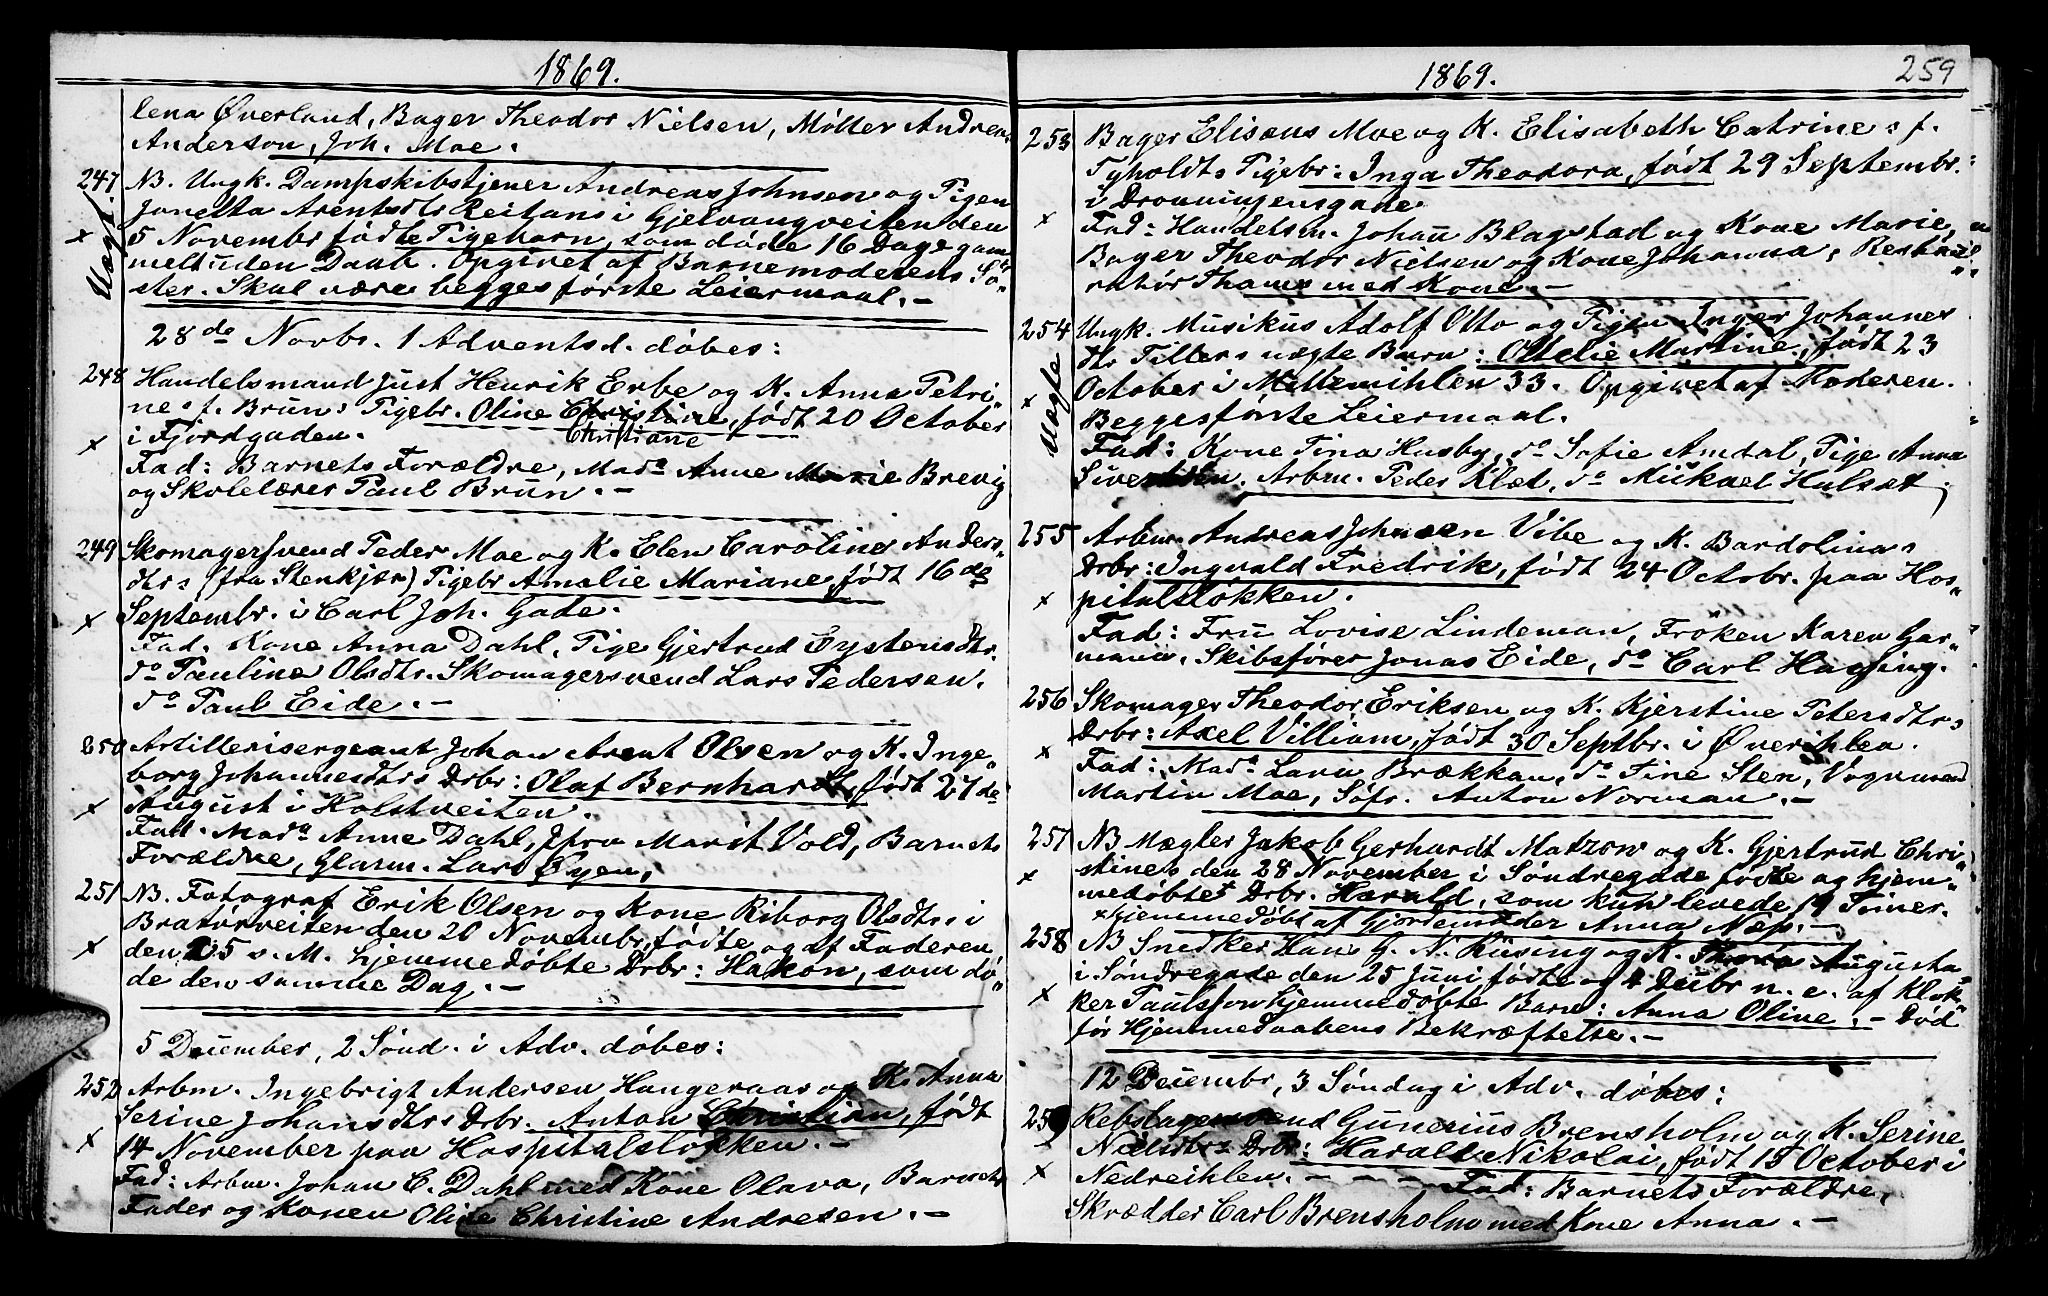 1869.
lena Øverland, Bager Theodor Nielsen, Møller Andreas
Anderson, Joh. Moe.
247 NB. Ungk. Dampskibstjener Andreas Johnsen og Pigen
Uægt. Jonetta Arentsdtr Reitans i Gjelvangveiten den
x 5 Novembr fødte Pigebarn, som døde 16 Dage gam
melt uden Daab. Opgivet af Barnemoderens Sø
ster. Skal være begges første Leiermaal. –
28de Novbr. 1 Adventsd. døbes:
248 Handelsmand Just Henrik Erbe og K. Anna Petri
nes f. Bruns Pigebr. Oline Christine, født 20 October
x i Fjordgaden. Christiane
Fad: Barnets Forældre, Mada Anne Marie Brevig
og Skolelærer Paul Brun. –
249 Skomagersvend Peder Moe og K. Elen Carolines Anders
dtrs (fra Stenkjær) Pigebr Amalie Mariane, født 16de
x Septembr. i Carl Joh. Gade.
Fad. Kone Anna Dahl, Pige Gjertrud Eystensdtr.
do Pauline Olsdtr. Skomagersvend Lars Pedersen,
do Paul Eide. –
250 Artillerisergeant Johan Arent Olsen og K. Inge
borg Johannesdtrs Drbr: Olaf Bernhardt, født 27de
x August i Holstveiten.
Fad. Mada Anne Dahl, Marit Vold, Barnets
Forældre, Glarm. Lars Øyen,
251 NB. Fotograf Erik Olsen og Kone Riborg Olsdtrs i
Bratørveiten den 20 Novembr. fødte og af Faderen
x den 25 s. M. hjemmedøbte Drbr: Hakon, som dø
de den samme Dag. –
5 December, 2 Sönd. i Adv. døbes:
252 Arbm. Ingebrigt Andersen Haugeraas og K. Anna
Serine Johansdtrs Drbr. Anton Christian, født
x 14 November paa Hospitalsløkken. –
Fad: Arbm. Johan C. Dahl med Kone Olava, Barnets
Fader og Konen Oline Christine Andresen. –
1869. 259
253 Bager Elisæus Moe og K. Elisabeth Catrines f.
Tyholdts Pigebr: Inga Theodora, født 29 Septembr.
i Dronningensgade.
x Fad: Handelsm. Johan Blagstad og Kone Marie,
Bager Theodor Nielsen og Kone Johanna, Restau
ratør Thams med Kone. –
254 Ungk. Musikus Adolf Otto og Pigen Inger Johannes
dtr Tillers uægte Barn: Ottelie Martine, født 23
x Uægte October i Mellemihlen 33. Opgivet af Moderen.
Begges første Leiermaal.
Fad: Kone Tina Husby, do Sofie Amdal, Pige Anna
Sivertsen. Arbm. Peder Klæt, do Mickael Hulsæt
255 Arbm. Andreas Johnsen Vibe og K. Bardolinas
Drbr: Ingvald Fredrik, født 24 Octobr. paa Hos
x pitalsløkken.
Fad: Fru Lovise Lindeman, Frøken Karen Gar
mann, Skibsfører Jonas Eide, do Carl Hagsing.
256 Skomager Theodor Eriksen og K. Kjerstine Petersdtrs
Drbr: Axel Villiam, født 30 Septbr. i Øvreihlen.
x Fad: Mada Lava Brækkan, do Tine Sten, Vognmand
Martin Moe, Söfr. Anton Norman. –
257 NB Mægler Jakob Gerhardt Matzow og K. Gjertrud Chri
x stines den 28 November i Søndregade fødte og hjem
medøbte+ Drbr. Harald, som kun levede 19 Timer.
x hjemmedøbt af Gjordemoder Anna Næp. –
258 NB Snedker Hans J. N. Rüsing og K. Thora Augustas
i Søndregade den 25 Juni fødte og 4 Decbr n. e. af Klok
x ker Paulson hjemmedøbte Barn: Anna Oline. – Død
før Hjemmedaabens Bekræftelse. –
12 Decembr, 3 Søndag i Adv. døbes:
259 Rebslagersvend Gunerius Brensholm og K. Serine
Nielsdtrs Drbr: Harald Nikolai, født 15 October i
x Nedreihlen. – – – – Fad: Barnets Forældre,
Skrædder Carl Brensholm med Kone Anna. –